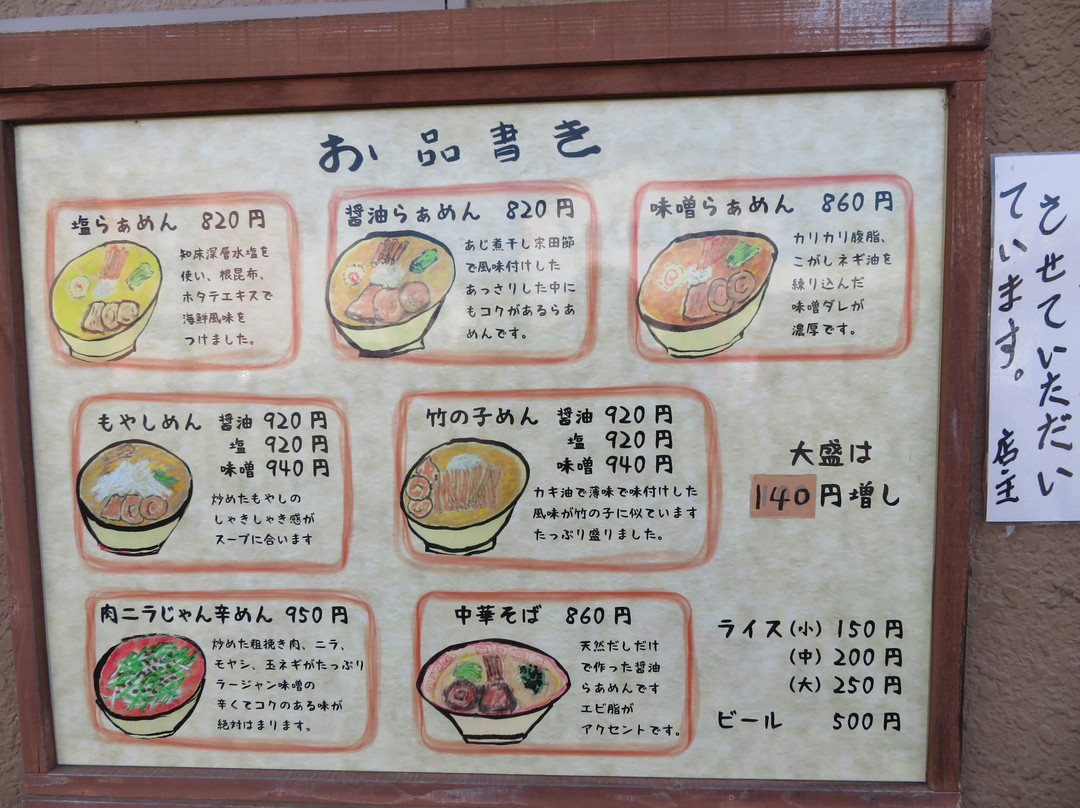 お品書き
塩らぁめん 820円
知床深層水塩を
使い、根昆布、
ホタテエキスで
海鮮風味を
つけました。
醤油らぁめん 820円
あじ煮干し宗田節
で風味付けした
あっさりした中に
もコクがあるらあ
めんです。
味噌らぁめん 860円
カリカリ腹脂、
こがしネギ油を
練り込んだ
味噌ダレが
濃厚です。
もやしめん 醤油 920円
塩 920円
味噌 940円
炒めたもやしの
しゃきしゃき感が
スープに合います
竹の子めん 醤油 920円
塩 920円
味噌 940円
カキ油で薄味で味付けした
風味が竹の子に似ています
たっぷり盛りました。
大盛は
140円増し
肉ニラじゃん辛めん 950円
炒めた粗挽き肉、ニラ、
モヤシ、玉ネギがたっぷり
ラージャン味噌の
辛くてコクのある味が
絶対はまります。
中華そば 860円
天然だしだけ
で作った醤油
らあめんです
エビ脂が
アクセントです。
ライス(小) 150円
(中) 200円
(大) 250円
ビール 500円
させていただい
ています。
店主